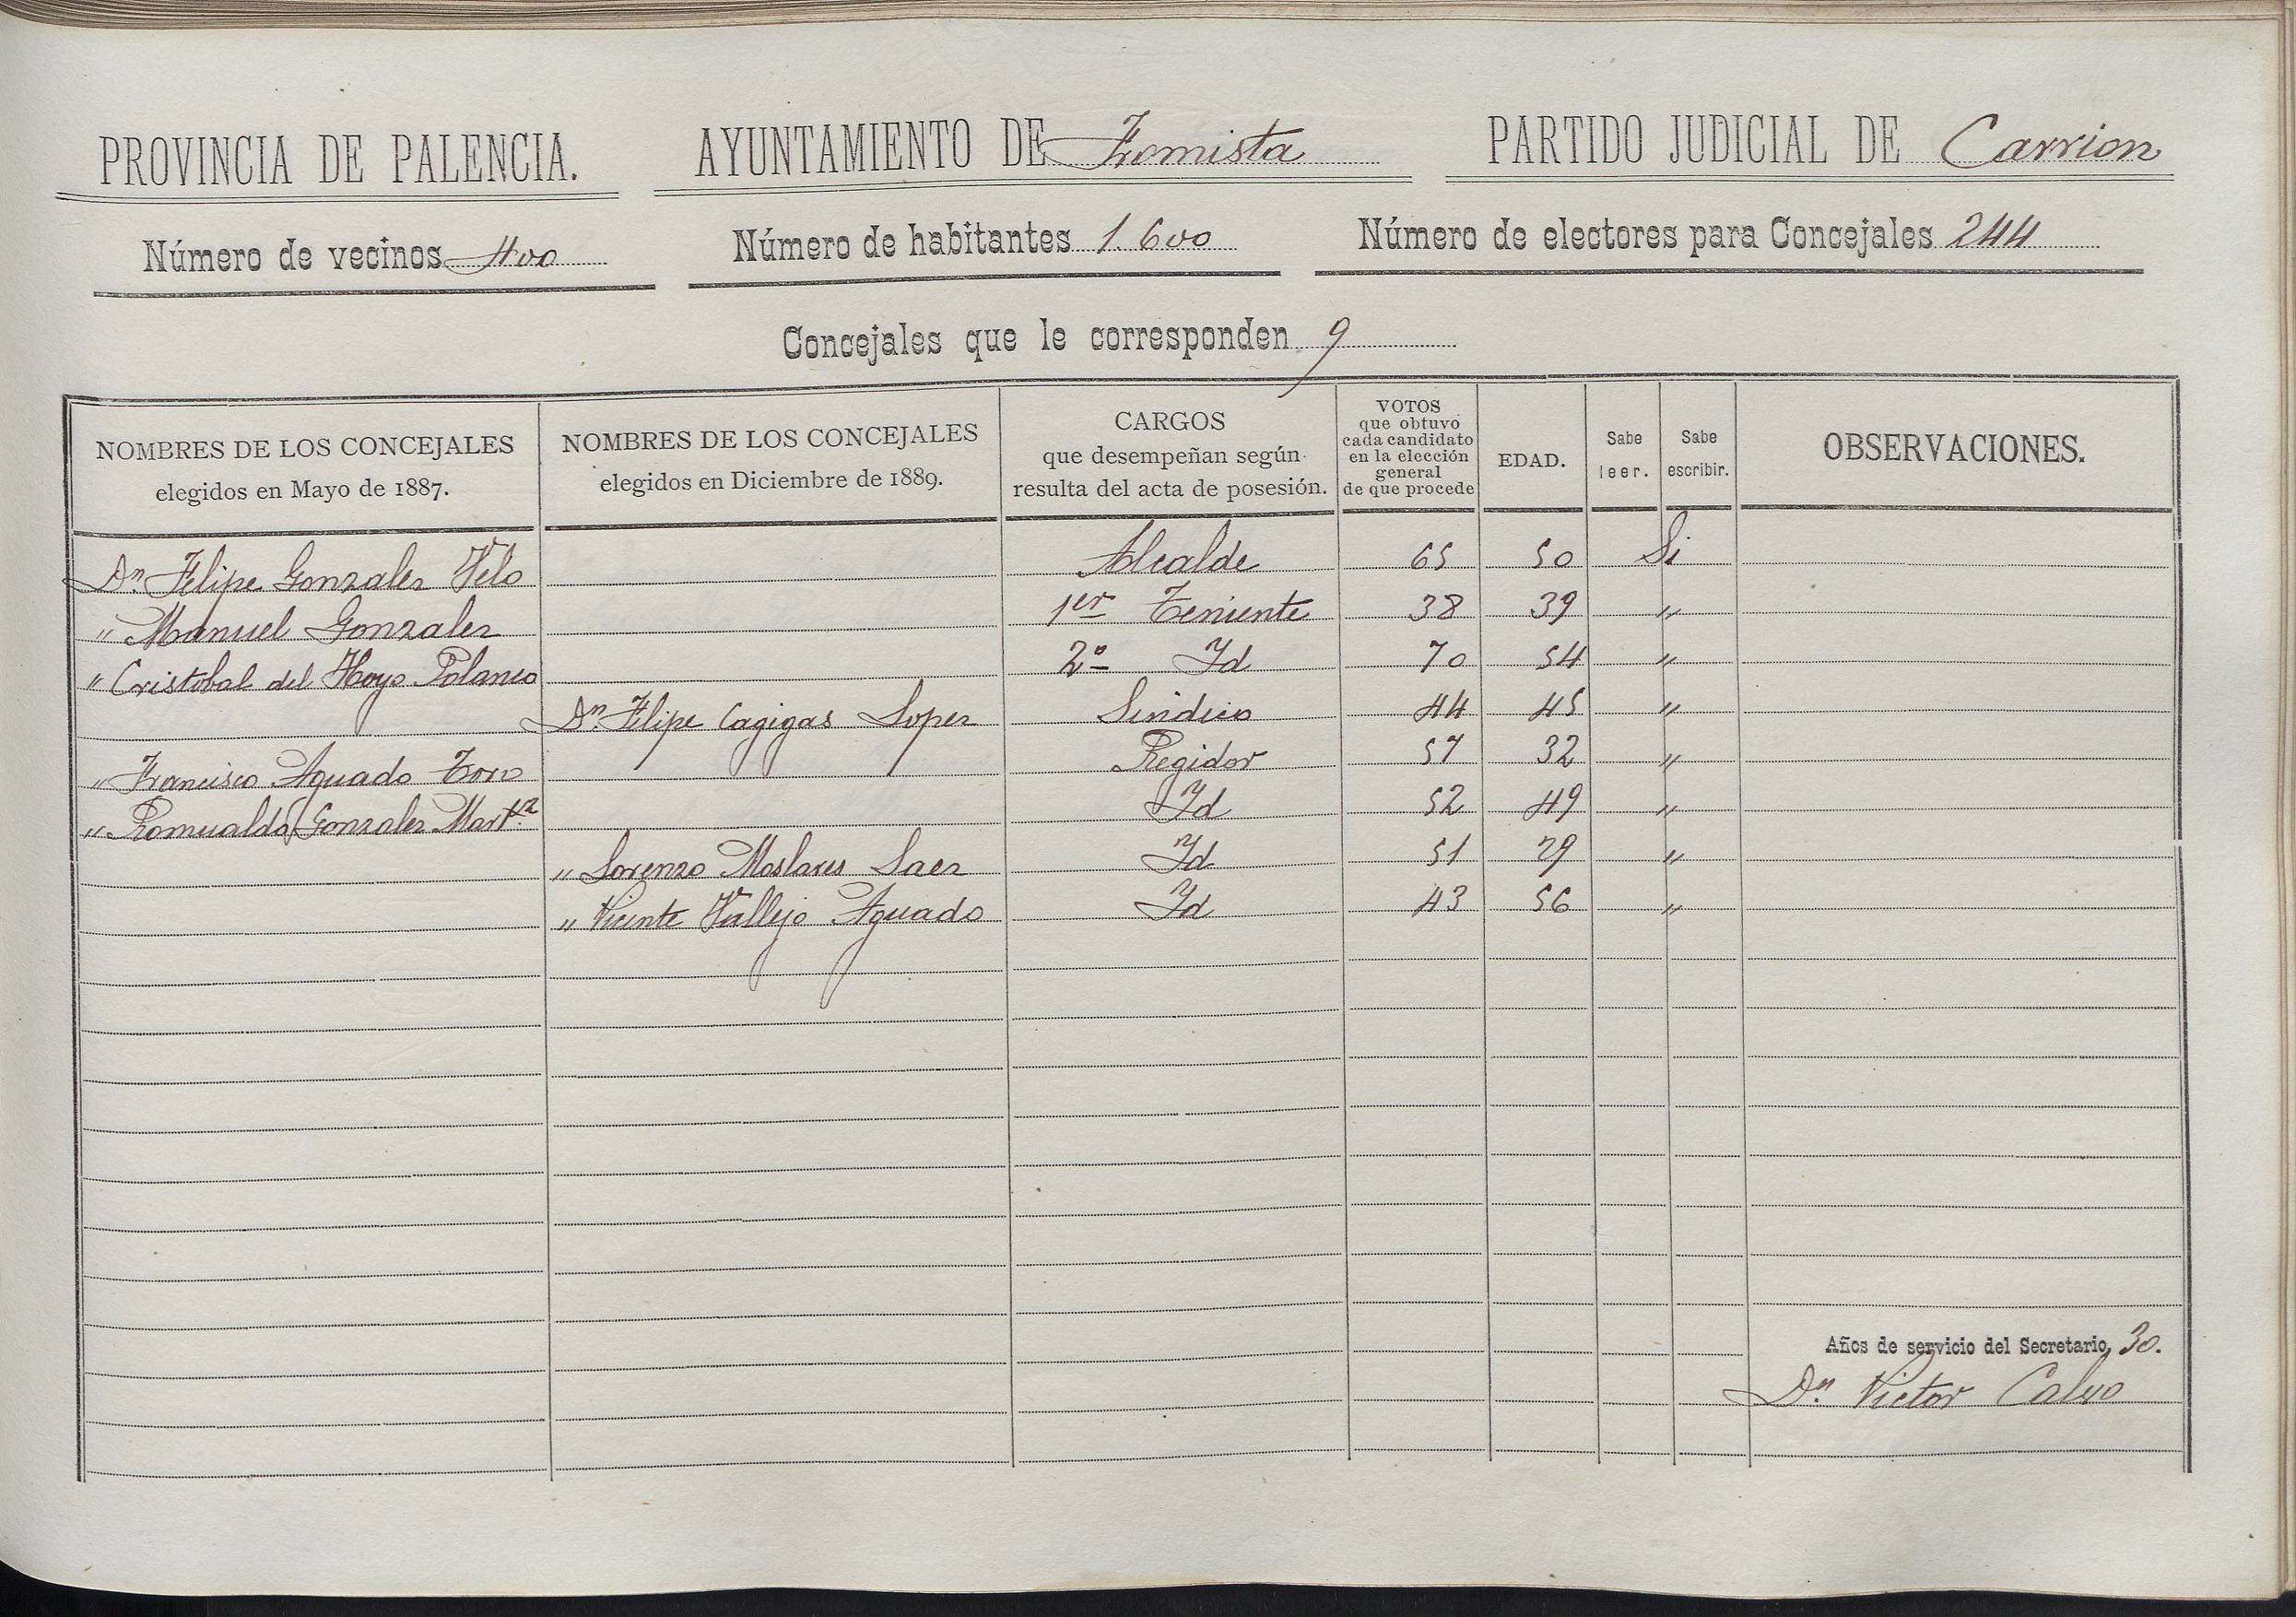 PROVINCIA DE PALENCIA. AYUNTAMIENTO DE Fromista PARTIDO JUDICIAL DE Carrion
Número de vecinos 400 Número de habitantes 1600 Número de electores para Concejales 244
Concejales que le corresponden 9
NOMBRES DE LOS CONCEJALES elegidos en Mayo de 1887. NOMBRES DE LOS CONCEJALES elegidos en Diciembre de 1889. CARGOS que desempeñan según resulta del acta de posesión. VOTOS que obtuvo cada candidato en la elección general de que procede EDAD. Sabe leer. Sabe escribir. OBSERVACIONES.
Dn. Felipe Gonzalez Velo Alcalde 65 50 Si
" Manuel Gonzalez 1er Teniente 38 39 "
" Cristobal del Hoyo Polanco 2º Id 70 54 "
Dn. Felipe Cagigas Lopez Sindico 44 45 "
" Francisco Aguado Toro Regidor 57 32 "
" Romualdo Gonzalez Martez Id 52 49 "
" Lorenzo Saez Id 51 29 "
" Vicente Vallejo Aguado Id 43 56 "
Años de servicio del Secretario, 30.
Dn. Victor Calvo